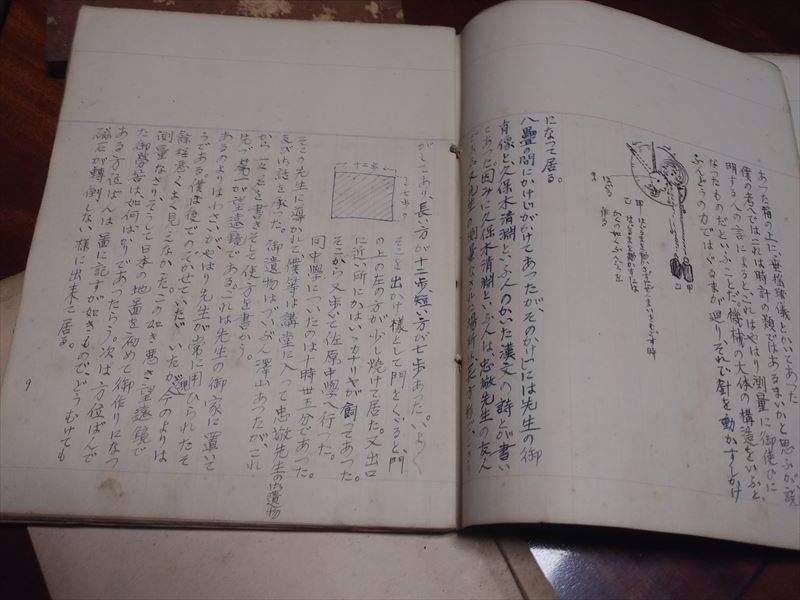 あつた箱の上に垂揺球儀とかいてあつた
僕の考ではこれは時計の類ではあるまいかと思ふが、説
明する人の言によると、これはやはり測量に御使ひに
なつたものだといふことだ。機械の大体の構造をいふと、
ふんどうの力ではぐるまが廻りそれで針を動かすしかけ
甲
乙
はり
甲はぐるまを動かさず
乙はぐるまを動かすには
作る
になつて居る。
八疊の間にかけじがかけてあつたが、そのかけじには先生の御
肖像と久保木清淵といふ人のかいた漢文の詩とが書い
てあつた。因みに久保木清淵といふ人は忠敬先生の友人
がしてあり、長い方が十二歩短い方が七歩あつた。
十二歩
七歩
そこを出かけ様として門をくぐると門
の上の左の方が少し焼けて居た。又出口
に近い所にかはいいカナリヤが飼つてあつた。
そこから又歩いて佐原中學へ行つた。
同中學についたのは十時卅五分であつた。
そこの先生に導かれて僕等は講堂に入つて忠敬先生の御遺物
及び御話を承つた。御遺物はずいぶん澤山あつたが、これ
から一々名を書きそして使方を書かう。
先づ第一が望遠鏡である。これは先生の御家に置いて
あるのよりはわるいがやはり先生が常に用ひられたそ
うである。僕は後でのぞかせていたゞいたが今のよりは
餘程悪くよく見えなかつた。この如き悪き望遠鏡で
測量なさりそうして日本の地圖を初めて御作りになつ
た御勞苦は如何ばかりであつたらう。次は方位ばんで
ある方位ばんは圖に記すが如きものでどうむけても
磁石が轉倒しない様に出来て居る。
9